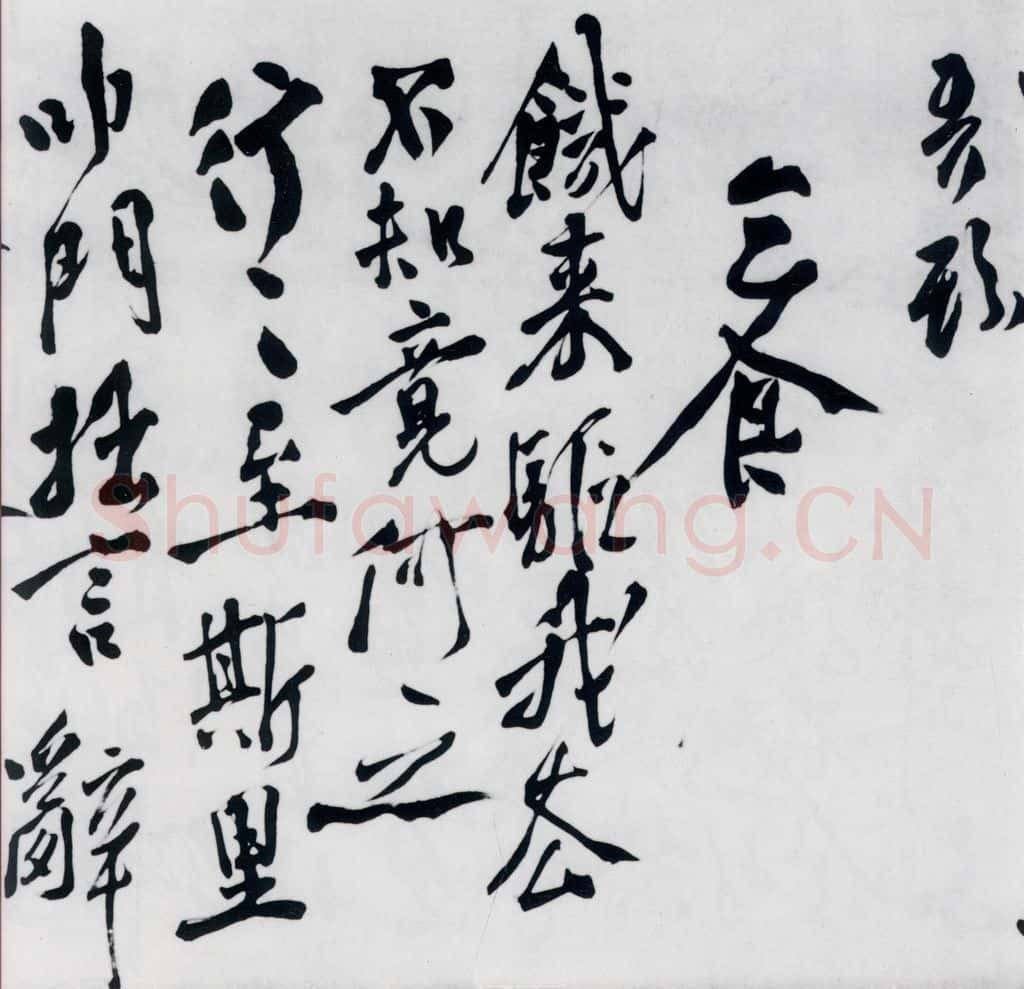 乞食
饑来駈我去
不知竟何之
行〻至斯里
叩門拙言辭
Shufawang.CN